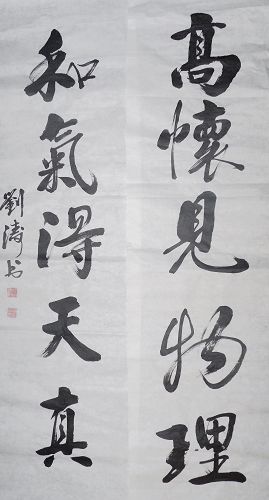 高懷見物理
和氣得天真
劉濤书